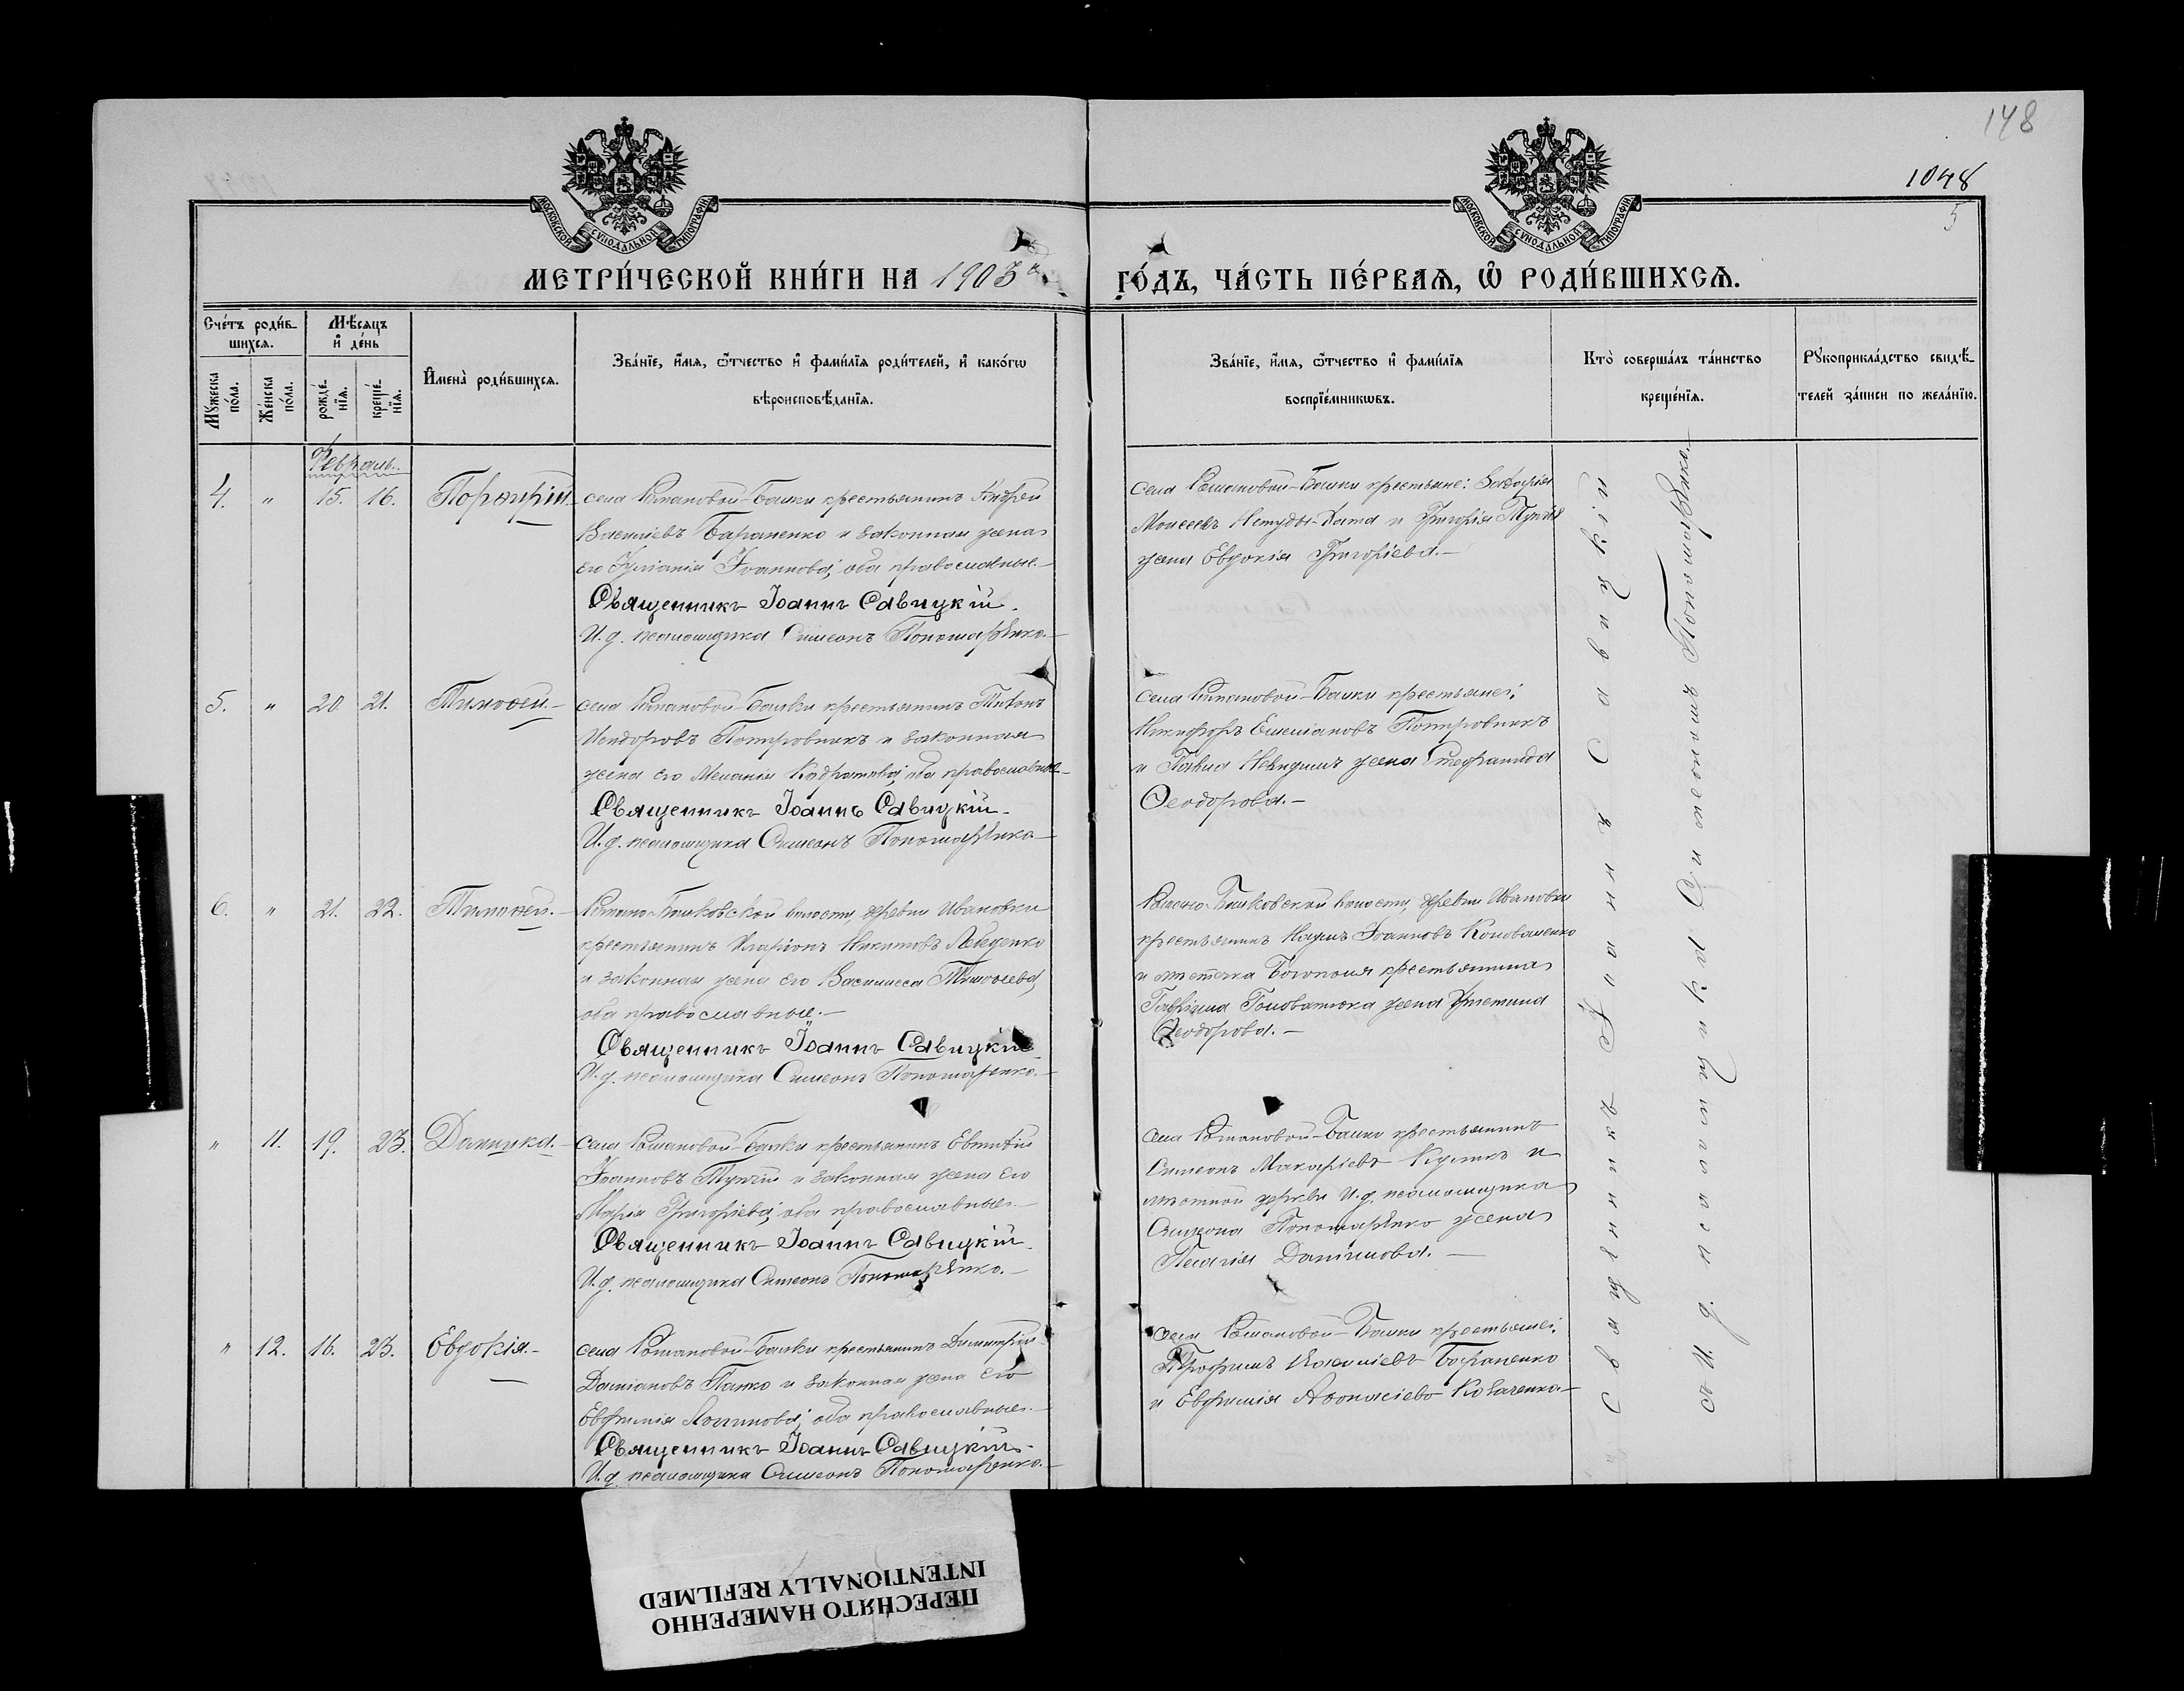 148
1048
5
МОСКОВСКОЙ СѴНОДАЛЬНОЙ ТИПОГРАФІИ
МОСКОВСКОЙ СѴНОДАЛЬНОЙ ТИПОГРАФІИ
МЕТРИ́ЧЕСКОЙ КНИ́ГИ НА 1903й
ГО́ДЪ, ЧА́СТЬ ПЕ́РВАѦ, Ѿ РОДИ́ВШИХСѦ.
Сче́тъ роди́в-
шихсѧ.
Мѣ́сѧцъ
и҆ де́нь
Мꙋ́жеска
по́ла.
Же́нска
по́ла.
рожде́-
нїѧ.
креще́-
нїѧ.
И҆мена̀ роди́вшихсѧ.
Зва́нїе, и҆́мѧ, ѻ҆́тчество и҆ фами́лїѧ роди́телей, и҆ какѡ́гѡ
вѣроисповѣ́данїѧ.
Зва́нїе, и҆́мѧ, ѻ҆́тчество и҆ фами́лїѧ
воспрїе́мникѡвъ.
Кто̀ соверша́лъ та́инство
креще́нїѧ.
Рꙋкоприкла́дство свидѣ́-
телей за́писи по жела́нїю.
Февраль.
4.
"
15.
16.
Порфирій.
села Романовой-Балки крестьянинъ Андрей
Василіевъ Бараненко и законная жена
его Іуліанія Іоаннова, оба православные.-
Священникъ Іоаннъ Савицкій.
И. д. псаломщика Симеонъ Пономарѣнко.-
села Романовой-Балки крестьяне: Захарія
Моисеевъ Нетуды-Хата и Григорія Тупчія
жена Евдокія Григоріева.-
5.
"
20.
21.
Тимоѳей.-
села Романовой-Балки крестьянинъ Титъ
Исидоровъ Попровникъ и законная
жена его Меланія Кодратова, оба православные-
Священникъ Іоаннъ Савицкій.
И. д. псаломщика Симеонъ Пономарѣнко-
села Романовой-Балки крестьяне:
Никифоръ Емеліановъ Попровникъ
и Павла жена Стефанида
Ѳеодорова.-
6.
"
21.
22.
Тимоѳей.-
Романо-Балковской волости, деревни Ивановки
крестьянинъ Иларіонъ Никитовъ Лебеденко
и законная жена его Василисса Тимоѳеева,
оба православные.-
Священникъ Іоаннъ Савицкій
И. д. псаломщика Симеонъ Пономаренко.-
Романо-Балковской волости, деревни Ивановки
крестьянинъ Наумъ Іоанновъ Коноваленко
и мѣстечка Богополя крестьянина
Гавріила Головатюка жена Устинія
Ѳеодорова.-
"
11.
19.
23.
Домника.-
села Романовой-Балки крестьянинъ Евтихій
Іоанновъ Тупчій и законная жена его
Марія Григоріева, оба православные.-
Священникъ Іоаннъ Савицкій.
И. д. псаломщика Симеонъ Пономарѣнко.-
села Романовой-Балки крестьянинъ
Симеонъ Макаріевъ Куликъ и
мѣстной церкви и. д. псаломщика
Симеона Пономарѣнко жена
Пелагія Даніилова.-
"
12.
16.
23.
Евдокія.-
села Романовой-Балки крестьянинъ Димитрій
Даміановъ Панко и законная жена его
Евфимія Логинова, оба православные.-
Священникъ Іоаннъ Савицкій.
И. д. псаломщика Симеонъ Пономаренко.-
села Романовой-Балки крестьяне:
Трофимъ Василіевъ Бараненко
и Евфимія Аѳонасіева Коваленко-
Священникъ Іоаннъ Савицкій
съ И. д. псаломщика Симеономъ Пономарѣнко.
ПЕРЕСНЯТО НАМЕРЕННО
INTENTIONALLY REFILMED